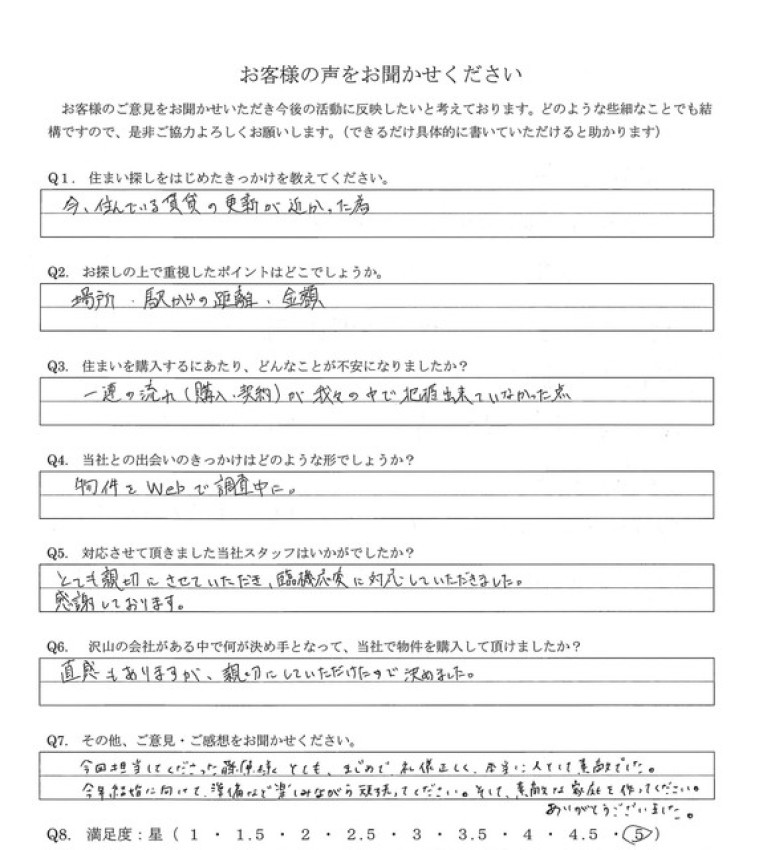 お客様の声をお聞かせください
お客様のご意見をお聞かせいただき今後の活動に反映したいと考えております。どのような些細なことでも結
構ですので、是非ご協力よろしくお願いします。（できるだけ具体的に書いていただけると助かります）
Q1. 住まい探しをはじめたきっかけを教えてください。
今、住んでいる賃貸の更新が近かった為
Q2. お探しの上で重視したポイントはどこでしょうか。
場所・駅からの距離・金額
Q3. 住まいを購入するにあたり、どんなことが不安になりましたか？
一連の流れ（購入・契約）が我々の中で把握出来ていなかった点
Q4. 当社との出会いのきっかけはどのような形でしょうか？
物件をWebで調査中に。
Q5. 対応させて頂きました当社スタッフはいかがでしたか？
とても親切にさせていただき、臨機応変に対応していただきました。
感謝しております。
Q6. 沢山の会社がある中で何が決め手となって、当社で物件を購入して頂けましたか？
直感もありますが、親切にしていただけたので決めました。
Q7. その他、ご意見・ご感想をお聞かせください。
今回担当してくださった様とても、まじめで、礼儀正しく、本当に人として素敵でした。
今年結婚に向けて、準備など楽しみながら頑張ってください。そして、素敵な家庭を作ってください。
ありがとうございました。
Q8. 満足度：星（ 1 ・ 1.5 ・ 2 ・ 2.5 ・ 3 ・ 3.5 ・ 4 ・ 4.5 ・ 5 ）